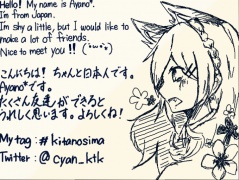 Hello! My name is Ayano*.
I'm from Japan.
I'm shy a little, but I would like to
make a lot of friends.
Nice to meet you!! (´・ω・`)
こんにちは! ちゃんと日本人です。
Ayano*です。
たくさん友達ができると
うれしく思います。よろしくね!
My tag : #kitanosima
Twitter : @cyan_ktk